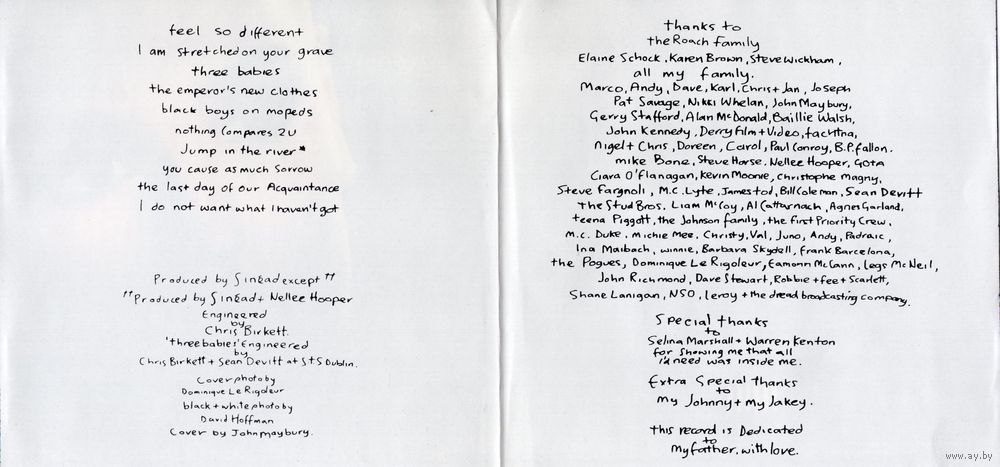 feel so different
I am stretched on your grave
three babies
the emperor's new clothes
black boys on mopeds
nothing compares 2U
Jump in the river*
you cause as much sorrow
the last day of our Acquaintance
I do not want what I haven't got
Produced by Sinéad except ""
""Produced by Sinéad + Nellee Hooper
Engineered
by
Chris Birkett.
'three babies' Engineered
by
Chris Birkett + Sean Devitt at STS Dublin.
Cover photo by
Dominique Le Rigoleur
black + white photo by
David Hoffman
Cover by John maybury.
thanks to
the Roach family
Elaine Schock, Karen Brown, Steve Wickham,
all my family.
Marco, Andy, Dave, Karl, Chris + Jan, Joseph
Pat Savage, Nikki Whelan, John Maybury,
Gerry Stafford, Alan McDonald, Baillie Walsh,
John Kennedy, Derry film + Video, fachtna,
Nigel + Chris, Doreen, Carol, Paul Conroy, B.P. fallon.
mike Bone, Steve Horse. Nellee Hooper, GOTA
Ciara O'flanagan, Kevin Moonie, christophe magny,
Steve Fargnoli, M.C. Lyte, James tod, Bill Coleman, Sean Devitt
the Stud Bros. Liam McCoy, Al Catturnach, Agnes Garland,
teena Piggott, the Johnson family, the first Priority Crew,
M.C. Duke, michie Mee. Christy, Val, Juno, Andy, Padraic,
Ina Maibach, winnie, Barbara Skydell, frank Barcelona,
the Pogues, Dominique Le Rigoleur, Eamonn McCann, legs McNeil,
John Richmond, Dave Stewart, Robbie + fee + Scarlett,
Shane Lanigan, NSO, leroy + the dread broadcasting company.
Special thanks
to
Selina Marshall + Warren Kenton
for showing me that all
I'd need was inside me.
Extra Special thanks
to
my Johnny + my Jakey.
this record is Dedicated
to
my father. with love.
www.ay.by